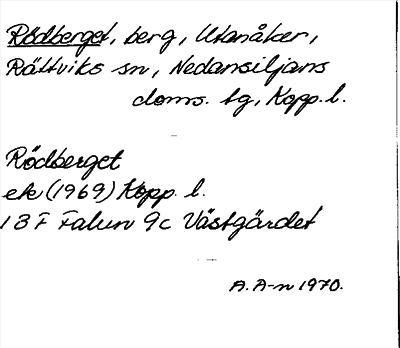 Rödberget, berg, Utanåker,
Rättviks sn, Nedansiljans
doms. tg, Kopp. l.
Rödberget
ek (1969) Kopp. l.
13 F Falun 9c Västgärdet
A. A-n 1970.